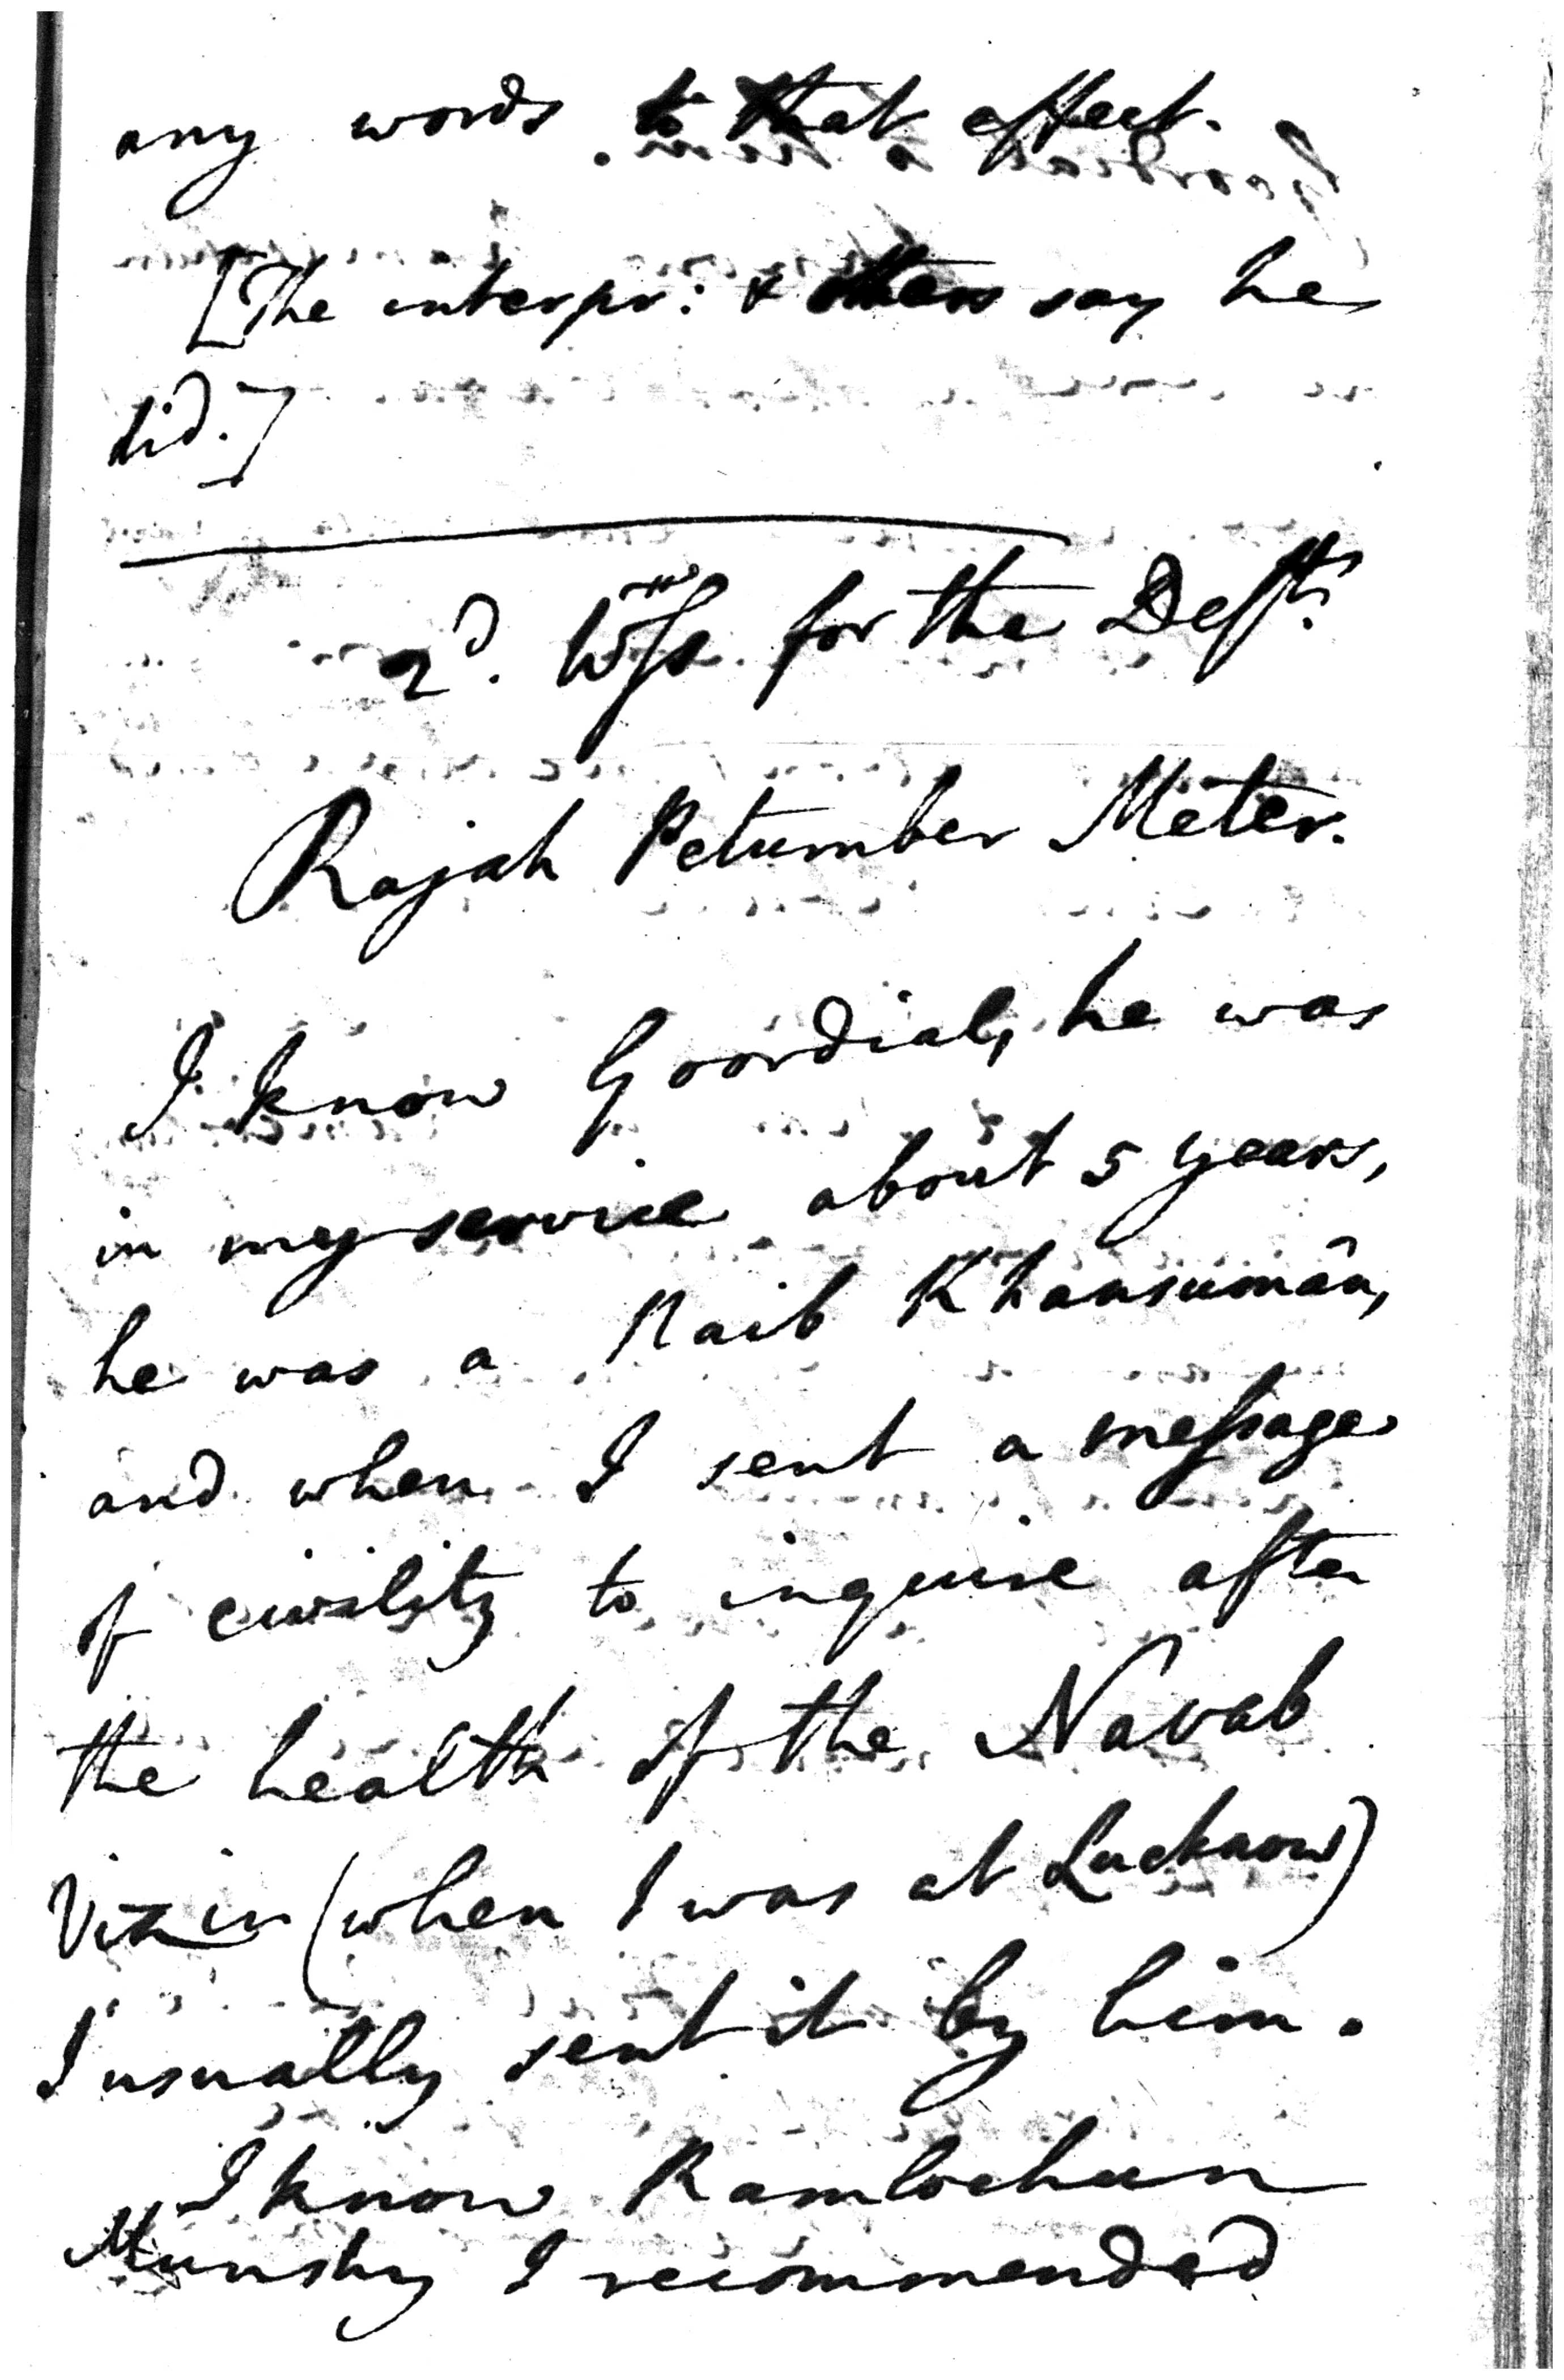 any words to that effect.
[The interpr: & others say he
did.]
2d. Wss for the Defts.
Rajah Petumber Meter.
I know Goordial, he was
in my service about 5 years,
he was a Naib Khansumân,
and when I sent a message
of civility to inquire after
the health of the Navab
Vizir (when I was at Lucknow)
I usually sent it by him.
I know Ramlochun
Munshy I recommended